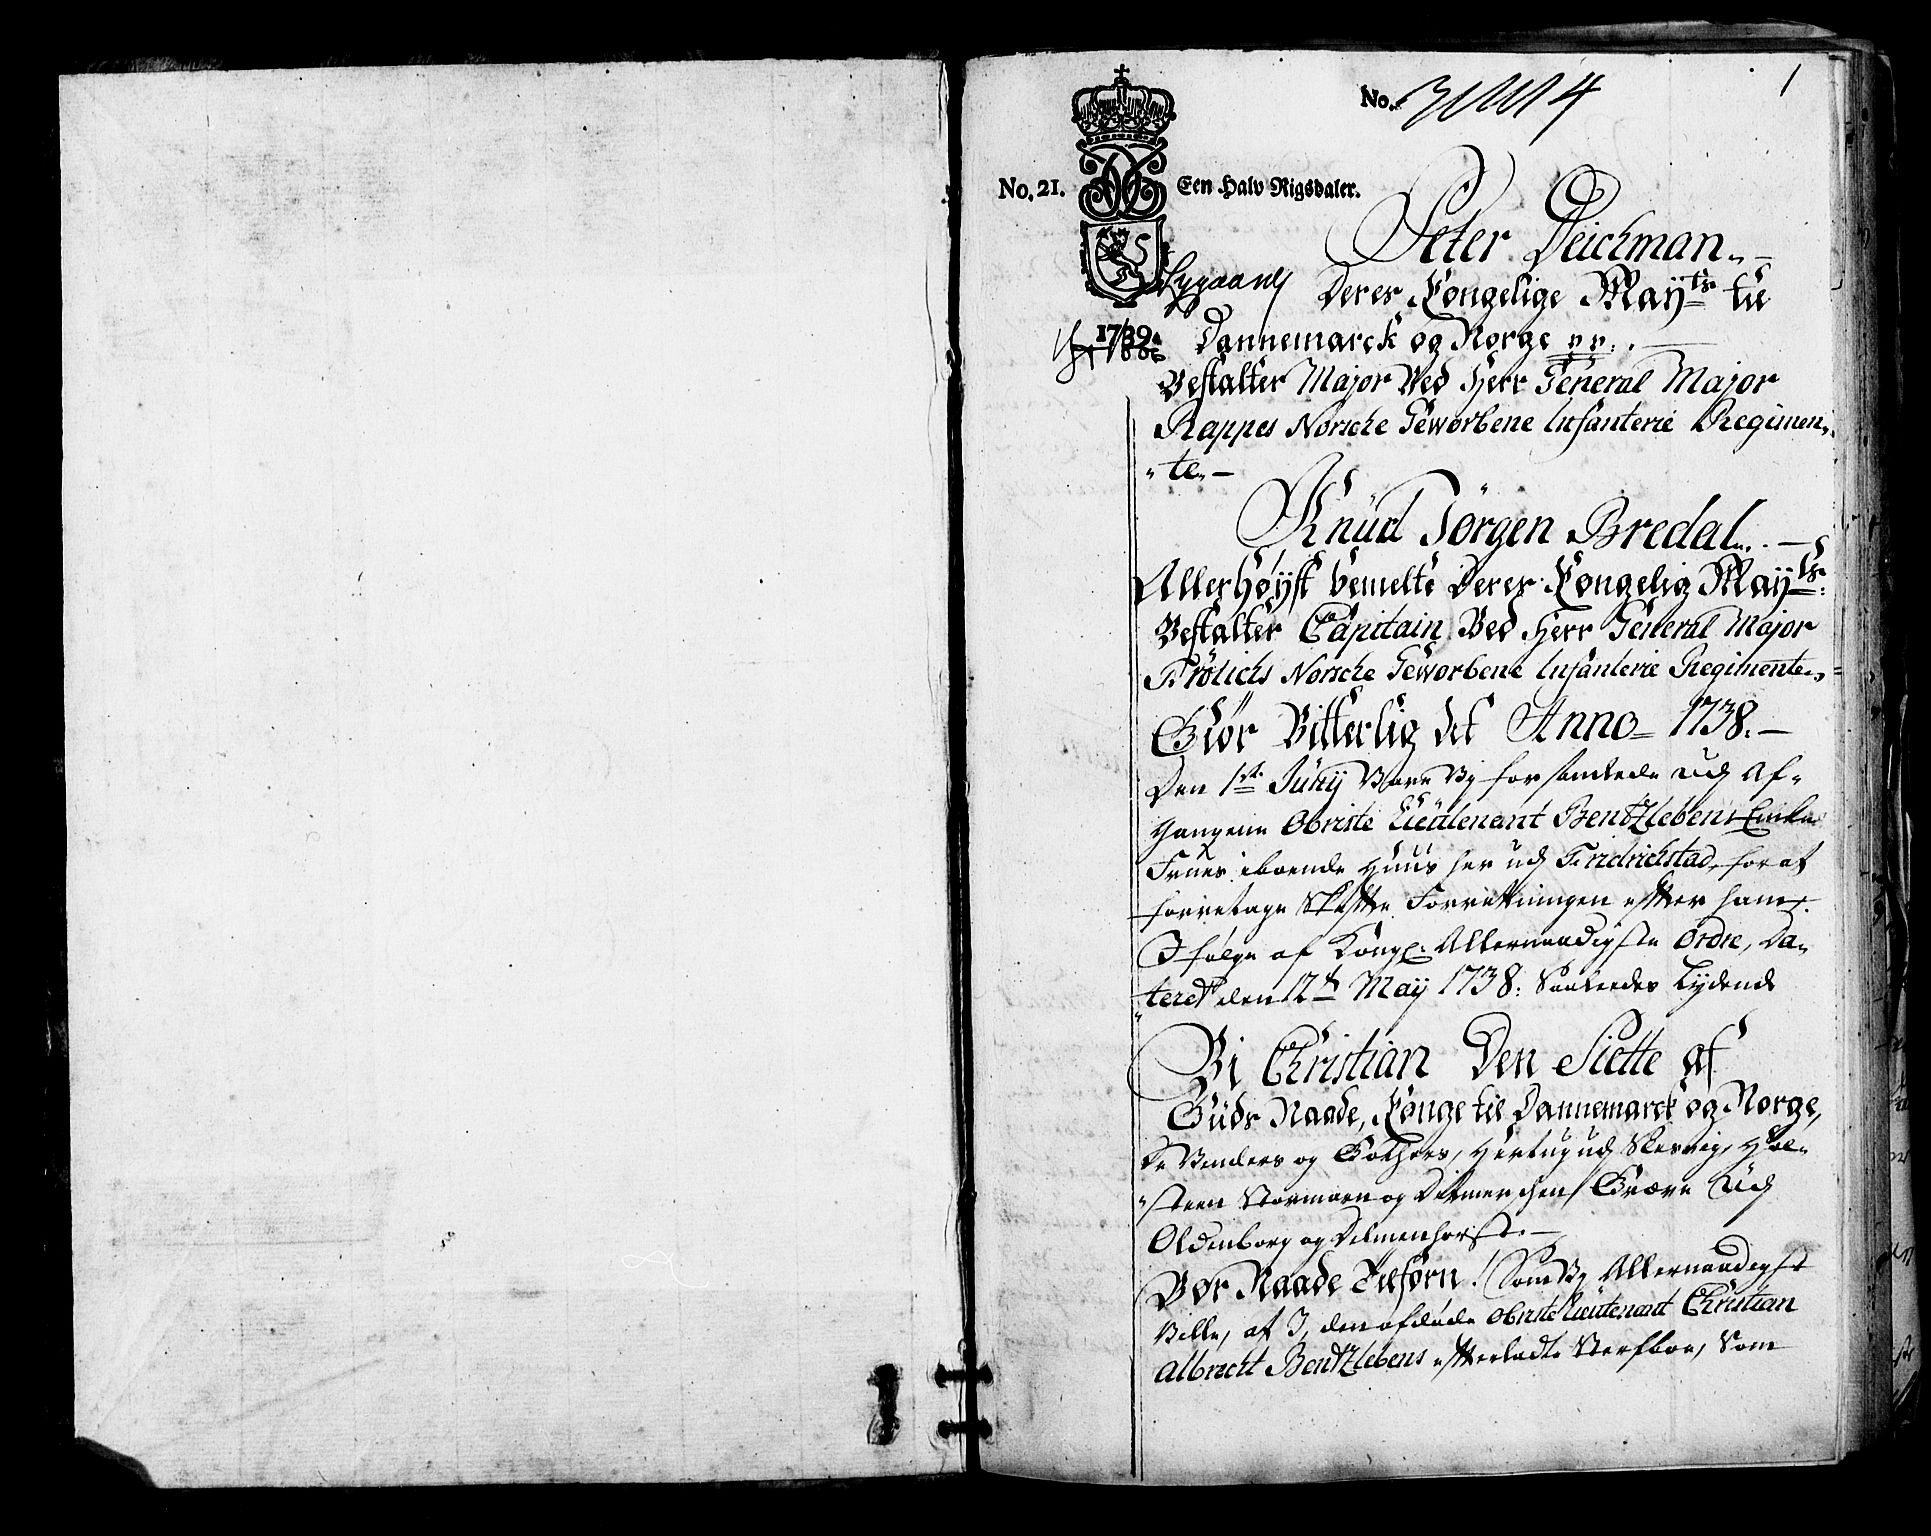 1
No.
No. 21. Een Halv Rigsdaler.
Peter Deichman
Deres Kongelige Mayts til
1739.
Dannemarck og Norge pp:.
Bestalter Major Ved Herr General Major
Kappes Norsche Geworbene Infanterie Regimen-
te
Knud Jörgen Bredal
Allerhøyst bemelte Deres Kongelig Mayts:
Bestalter Capitain Ved Herr General Major
Frölichs Norsche Geworbene Infanterie Regimente
Giør Vitterlig det Anno 1738.
Den 1ste Juny Vare Vy forsamlede udj Af-
gangene Obriste Lieutenant Bentzlebens Encke
Frues iboende Huus her udj Fridrichstad, for at
foretage Skifte Forretningen efter ham.
I følge af Kongl: Allernaadigste Ordre, Da-
teret den 12te May 1738: Saaledes Lydende
Vi Christian Den Siette af
Guds Naade, Konge til Dannemarck og Norge,
De Venders og Gothers, Hertug udj Slesvig, Hol-
steen Stormarn og Ditmerschen, Greve Udj
Oldenborg og Delmenhorst.
Vor Naade Tilforn! Som Vy Allernaadigst
Ville, at I, den afdøde Obriste Lieutenant Christian
Albrecht Bentzlebens efterladte Sterfboe, Som